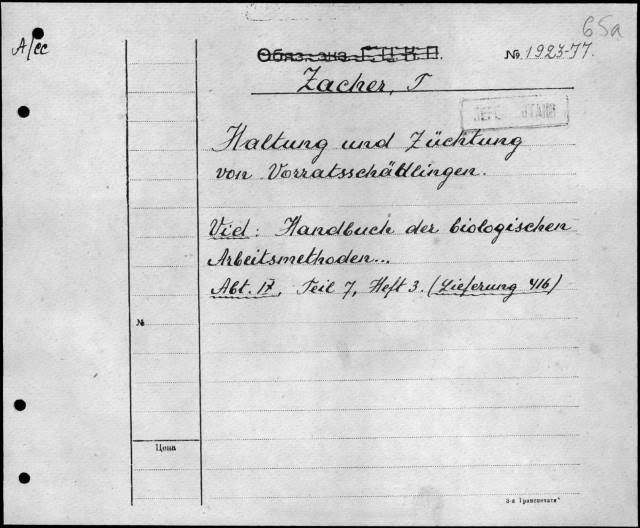 65a
A/сс
Обяз. экз. Г.Ц.К.П.
№ 1923-77.
Zacher, F
Haltung und Züchtung
von Vorratsschädlingen.
Vid: Handbuch der biologischen
Arbeitsmethoden...
Abt. IX, Teil 7, Heft 3. (Lieferung 416)
№
Цена
3-я Транспечать